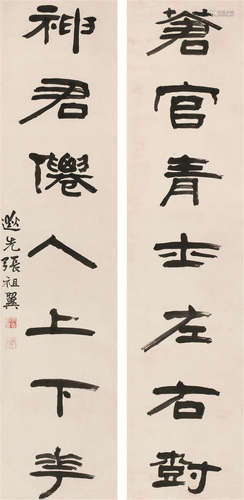 蒼官青士左右對
神君僊人上下半
逖先張祖翼